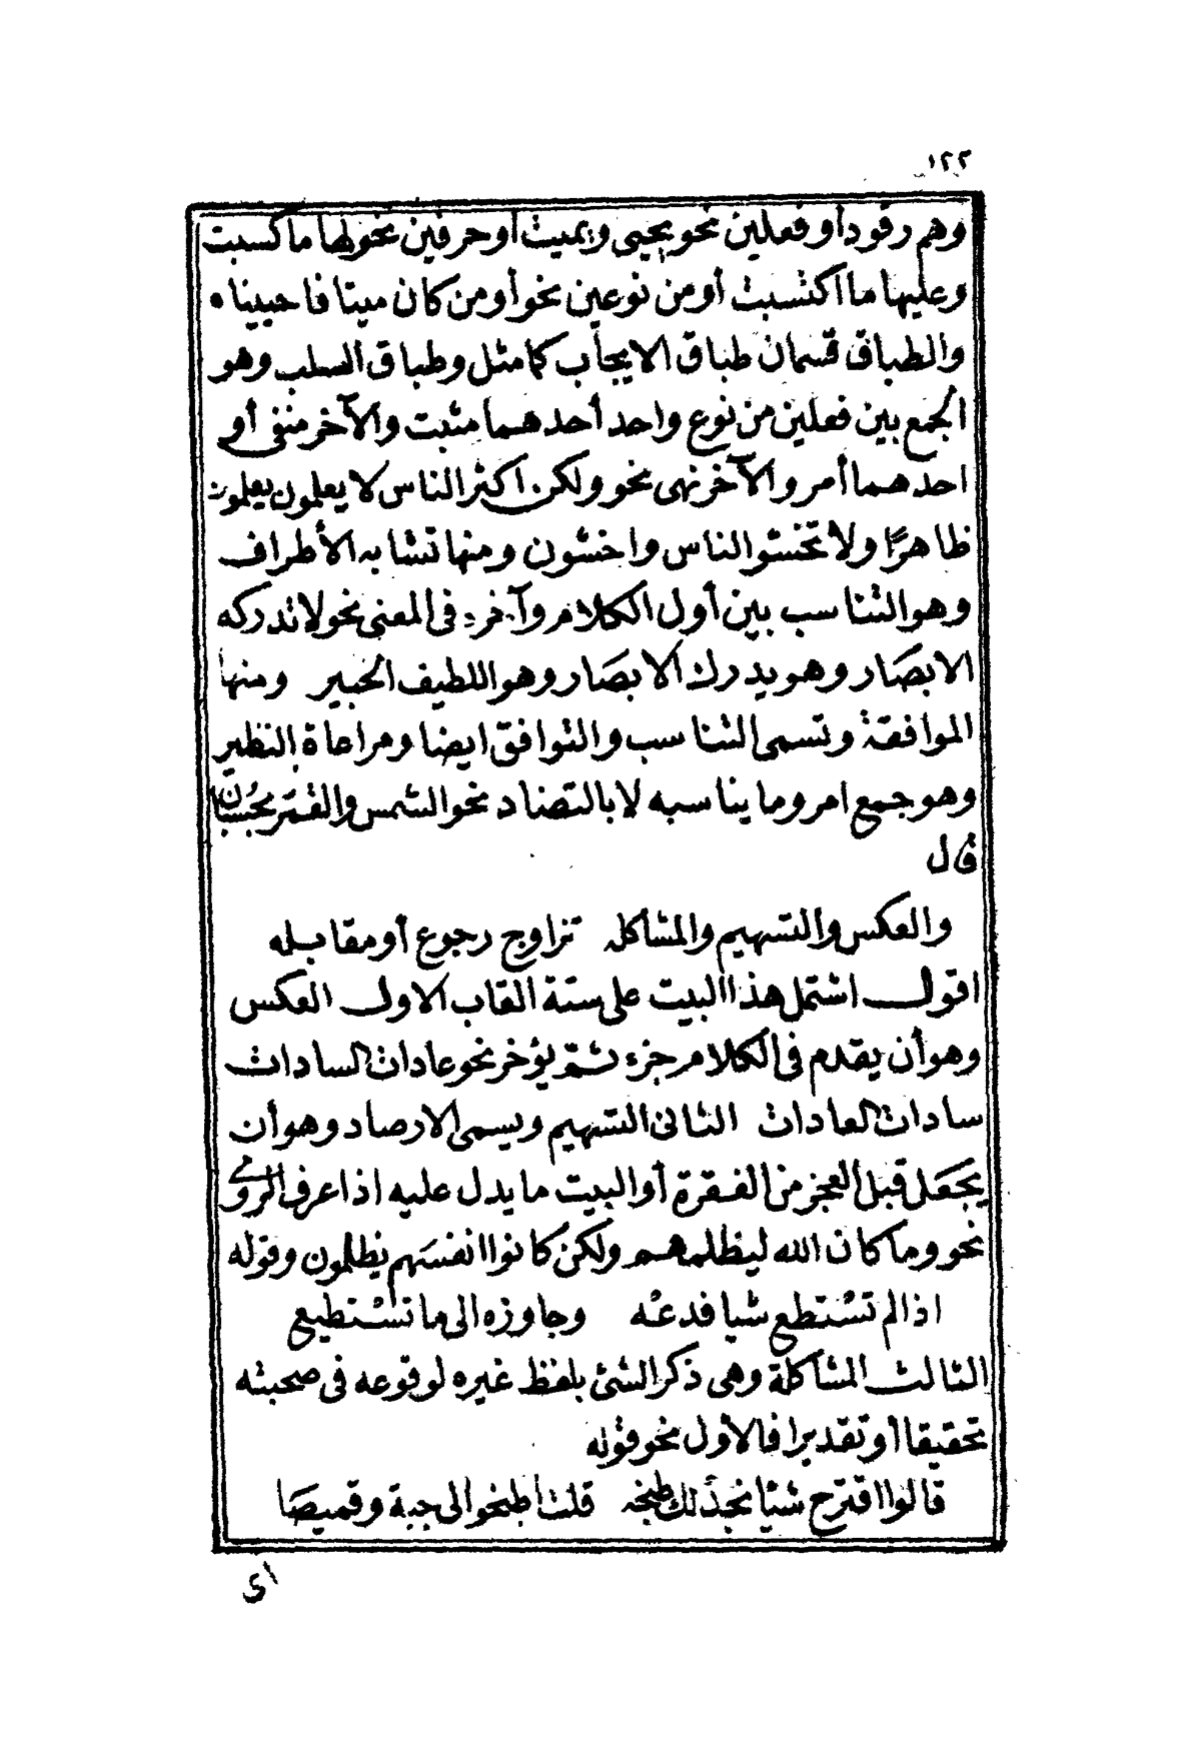 ١٢٢
وهم رقود أو فعلين نحو يحيى ويميت أو حرفين نحو لها ما كسبت
وعليها ما اكتسبت أو من نوعين نحو أومن كان ميتا فاحييناه
والطباق قسمان طباق الايجاب كما مثل وطباق السلب وهو
الجمع بين فعلين من نوع واحد أحدهما مثبت والآخر منفى أو
احدهما أمر والآخر نهى نحو ولكن اكثر الناس لا يعلمون يعلمون
ظاهرًا ولا تخشوا الناس واخشون ومنها تشابه الأطراف
وهو التناسب بين أول الكلام وآخره فى المعنى نحو لا تدركه
الابصَار وهو يدرك الابصَار وهو اللطيف الخبير ومنها
الموافقة وتسمى التناسب والتوافق ايضا ومراعاة النظير
وهو جمع امر وما يناسبه لا بالتضاد نحو الشمس والقمَر بحُسْبَان
قال
والعكس والتسهيم والمشاكله تزاوج رجوع أو مقابله
اقول اشتمل هذا البيت على ستة القاب الاول العكس
وهو أن يقدم فى الكلام جزء ثمّ يؤخر نحو عادات السادات
سادات العادات الثانى التسهيم ويسمى الارصاد وهو أن
يجَعَل قبل العجز من الفقرة أو البيت ما يدل عليه اذا عرف الروى
نحو وما كان الله ليظلمهم ولكن كانوا انفسَهم يظلمون وقوله
اذا لم تسْتطع شيا فدعْه وجاوزه الى ما تسْتطيع
الثالث المشاكلة وهى ذكر الشئ بلفظ غيره لوقوعه فى صحبته
تحقيقا أو تقديرا فالأول نحو قوله
قالوا اقترح شيًا نجدْ لك طبخه قلت اطبخوا لى جبة وقميصَا
اى